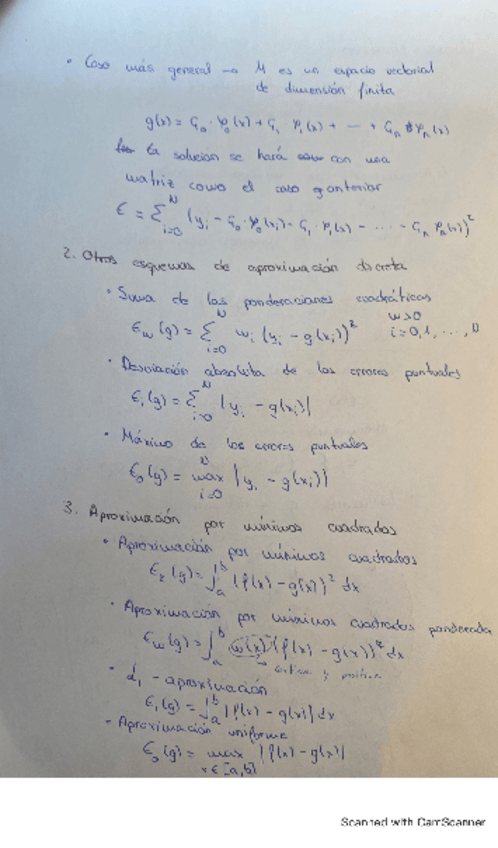 • Caso más general → M es un espacio vectorial
de dimensión finita
g(x) = C₀ · φ₀(x) + C₁ · φ₁(x) + --- + Cₙ φₙ(x)
La solución se hará con una
matriz como el caso anterior
ε = Σ_{i=0}^{N} (yᵢ - C₀ · φ₀(xᵢ) - C₁ · φ₁(x) - ... - Cₙ φₙ(x))²
2. Otros esquemas de aproximación discreta
• Suma de las ponderaciones cuadráticas
ε_w(g) = Σ_{i=0}^{N} wᵢ (yᵢ - g(xᵢ))² w>0
i=0,1,...,N
• Desviación absoluta de los errores puntuales
ε₁(g) = Σ_{i=0}^{N} |yᵢ - g(xᵢ)|
• Máximo de los errores puntuales
ε₀(g) = max_{i=0}^{N} |yᵢ - g(xᵢ)|
3. Aproximación por mínimos cuadrados
• Aproximación por mínimos cuadrados
ε₂(g) = ∫_a^b (f(x) - g(x))² dx
• Aproximación por mínimos cuadrados ponderada
ε_w(g) = ∫_a^b w(x) (f(x) - g(x))² dx
y positiva
• d₁ - aproximación
ε₁(g) = ∫_a^b |f(x) - g(x)| dx
- Aproximación uniforme
ε₀(g) = max |f(x) - g(x)|
x∈[a,b]
Scanned with CamScanner